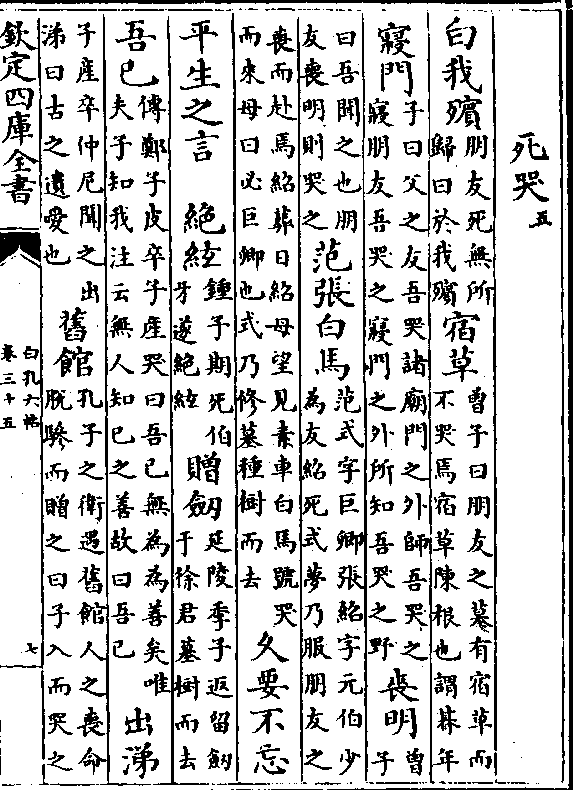 死哭五
曰我殯朋友死無所歸曰於我殯宿草曾子曰朋友之墓有宿草而不哭焉宿草陳根也謂朞年
寢門子曰父之友吾哭諸廟門之外師吾哭之寢朋友吾哭之寢門之外所知吾哭之野喪明曾子
曰吾聞之也朋友喪明則哭之范張白馬范式字巨卿張紹字元伯少為友紹死式夢乃服朋友之
喪而赴焉紹葬日紹母望見素車白馬號哭而來母曰必巨卿也式乃修墓種樹而去久要不忘
平生之言絕絃鍾子期死伯牙遂絕絃贈劔延陵季子返留劔于徐君墓樹而去
吾已傳鄭子皮卒子產哭曰吾已無為為善矣唯夫子知我注云無人知已之善故曰吾已出涕
子產卒仲尼聞之出涕曰古之遺愛也舊館孔子之衛遇舊館人之喪命脫驂而贈之曰子入而哭之
欽定四庫全書
白孔六帖
卷三十五
七